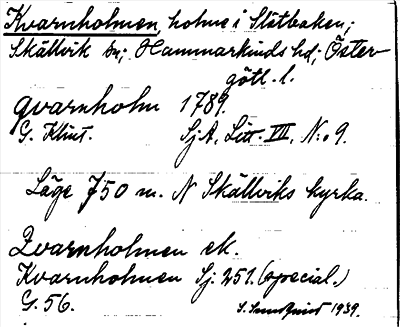 Kvarnholmen, holme i Slätbaken;
Skällvik sn; Hammarkinds hd; Öster-
götl. l.
qvarnholm 1789.
G. Klint. Sj.A. Litt. III, N:o 9.
Läge 750 m. N Skällviks kyrka.
Kvarnholmen ek.
Kvarnholmen Sj. 251. (special.)
G. 56. S. Sundquist 1939.